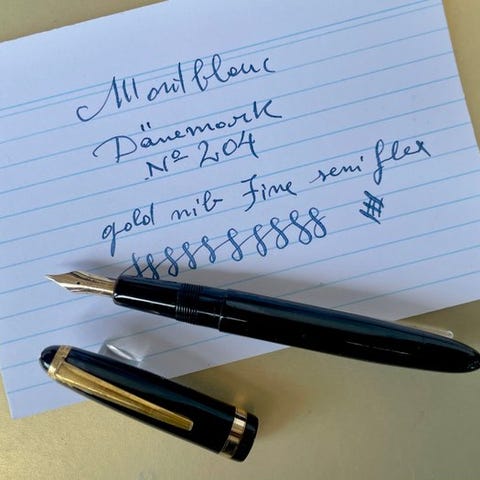 Montblanc
Dänemark
Nº 204
gold nib Fine semi flex